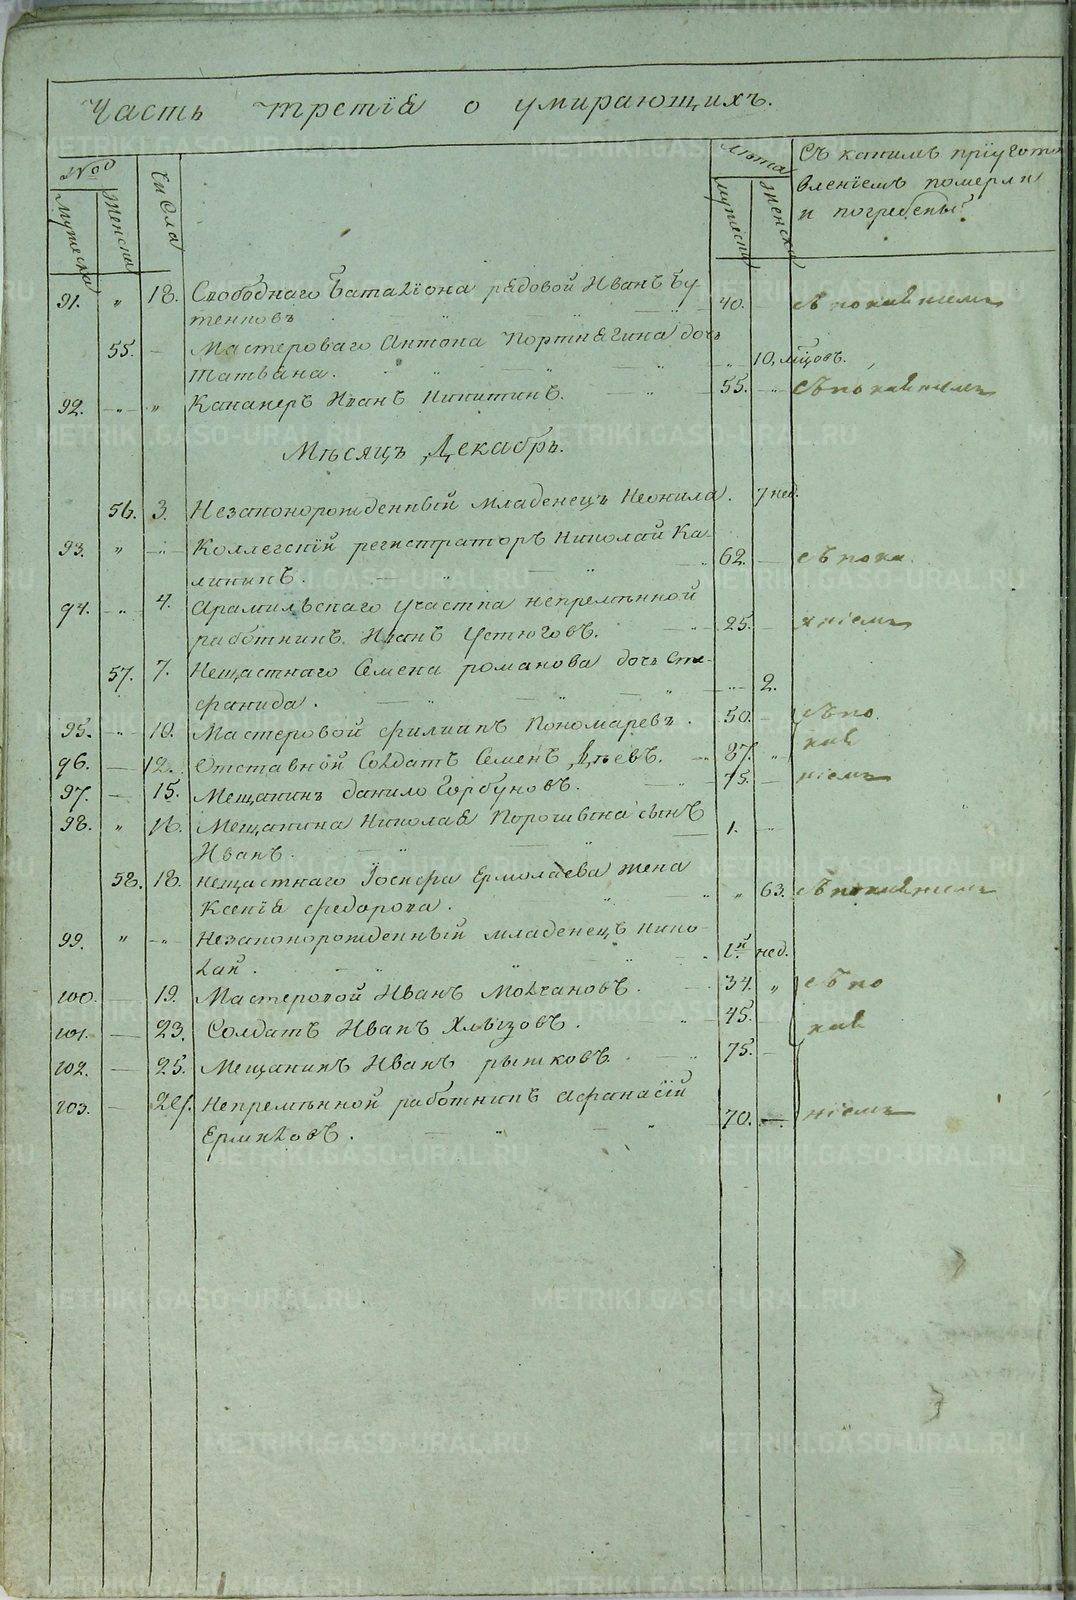 Часть третія о умирающихъ.
№
Лѣта
Съ какимъ пріугото-
влениемъ померли
и погребены?
Мужеска
Женска
Числа
Мужеска
Женска
91. " 18. Свободнаго баталіона рядовой Иванъ Бу- 40. съ покаяніемъ
тенковъ
55. Мастероваго Антона Портнягина дочь
Татьяна. " 10, мѣсов.
92. " " Кананеръ Иванъ Никитинъ. 55. съ покаяніемъ
Мѣсяцъ Декабрь.
56. 3. Незаконорожденный младенецъ Неонила. 7 нед.
93. " " Коллегскій регистраторъ Николай Ка-
лининъ. 62. съ пока
94. " 4. Арамильскаго участка непремѣнной
работникъ Иванъ Устюговъ. 25. яніемъ
57. 7. Нещастнаго Семена романова дочь Сте-
фанида. 2.
95. " 10. Мастеровой филипъ Пономаревъ. 50. съ по
96. 12. Отставной Солдатъ Семенъ 87. " кая
97. 15. Мещанинъ данило Горбуновъ. 75. ніемъ
98. " 16. Мещанина Николая Порошина сынъ 1.
Иванъ.
58. 18. нещастнаго Іосифа Ермолаева жена
Ксенія федорова. " 63. съ покаяніемъ
99. " " Незаконорожденный младенецъ Нико-
лай. 1й нед.
100. 19. Мастеровой Иванъ Молчановъ. 34. " съ по
101. 23. Солдатъ Иванъ Хлызовъ. 45. кая
102. 25. Мещанинъ Иванъ рыжковъ. 75.
103. Непремѣнной работникъ Афанасій
Ермиловъ. 70. ніемъ
METRIKI.GASO-URAL.RU